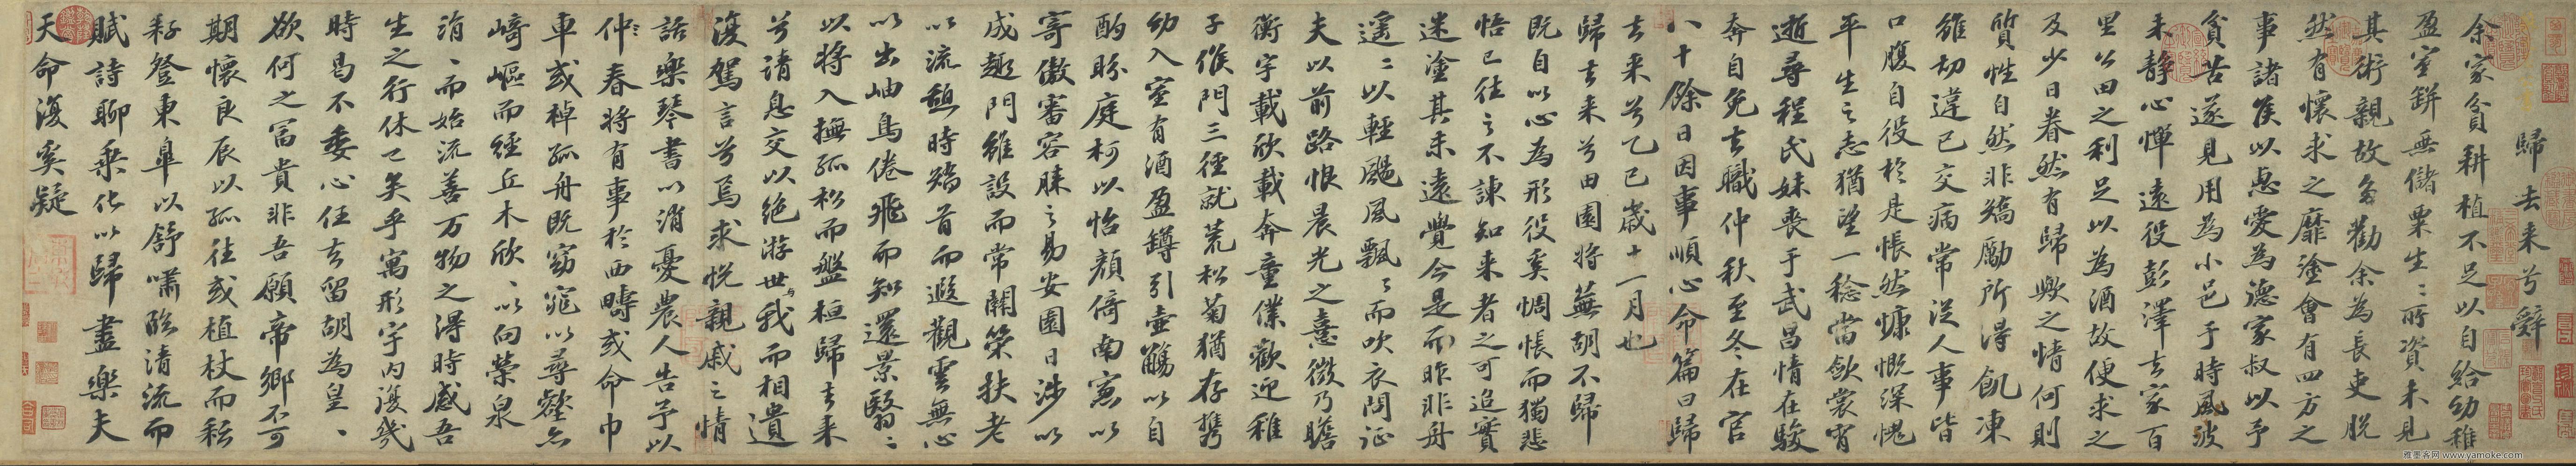 歸去来兮辭
余家貧耕植不足以自給幼稚
盈室缾無儲粟生〻所資未見
其術親故多勸余為長吏脫
然有懷求之靡塗會有四方之
事諸侯以惠愛為德家叔以予
貧苦遂見用為小邑于時風波
未静心憚遠役彭澤去家百
里公田之利足以為酒故便求之
及少日眷然有歸歟之情何則
質性自然非矯勵所得飢凍
雖切違已交病常從人事皆
口腹自役於是悵然慷慨深愧
平生之志猶望一稔當斂裳宵
逝尋程氏妹喪于武昌情在駿
奔自免去職仲秋至冬在官
八十餘日因事順心命篇曰歸
去来兮乙巳歲十一月也
歸去来兮田園將蕪胡不歸
既自以心為形役奚惆悵而獨悲
悟已往之不諫知来者之可追實
迷塗其未遠覺今是而昨非舟
遥〻以輕颺風飄〻而吹衣問征
夫以前路恨晨光之熹微乃瞻
衡宇載欣載奔童僕歡迎稚
子候門三徑就荒松菊猶存携
幼入室有酒盈罇引壺觴以自
酌眄庭柯以怡顏倚南窓以
寄傲審容膝之易安園日涉以
成趣門雖設而常關策扶老
以流憩時矯首而遐觀雲無心
以出岫鳥倦飛而知還景翳〻
以將入撫孤松而盤桓歸去来
兮請息交以絶游世與我而相遺
復駕言兮焉求悅親戚之情
話樂琴書以消憂農人告予以
仲春將有事於西疇或命巾
車或棹孤舟既窈窕以尋壑亦
崎嶇而經丘木欣〻以向榮泉
涓〻而始流善万物之得時感吾
生之行休已矣乎寓形宇内復幾
時曷不委心任去留胡為皇〻
欲何之富貴非吾願帝鄉不可
期懷良辰以孤往或植杖而耘
耔登東皐以舒嘯臨清流而
賦詩聊乘化以歸盡樂夫
天命復奚疑
雅墨客网 www.yamoke.com